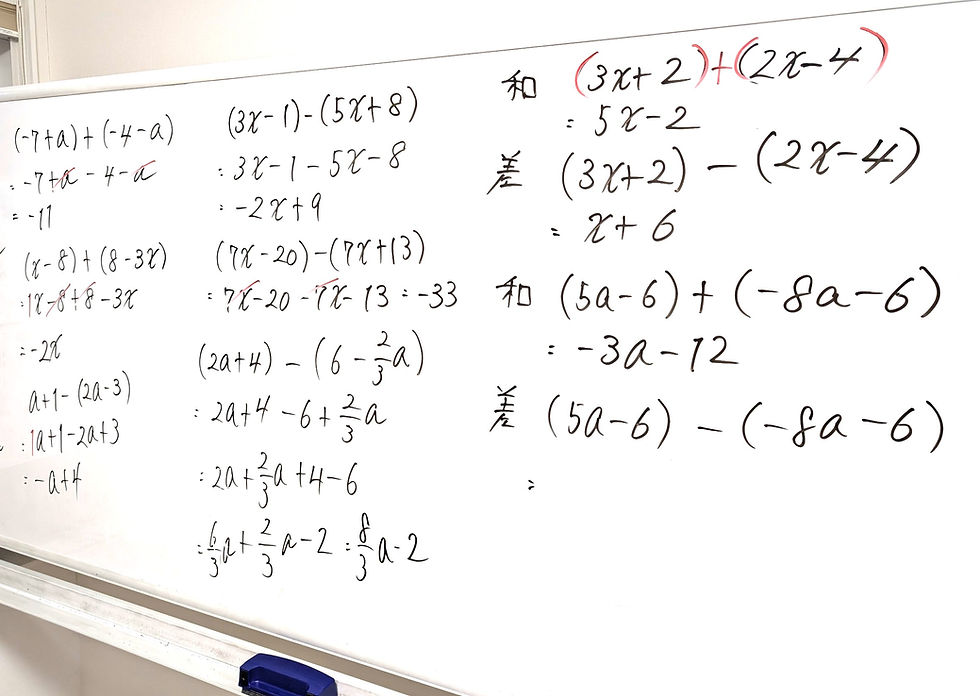 (-7+a)+(-4-a)
=-7+a-4-a
=-11
(x-8)+(8-3x)
=1x-8+8-3x
=-2x
a+1-(2a-3)
=1a+1-2a+3
=-a+4
(3x-1)-(5x+8)
=3x-1-5x-8
=-2x+9
(7x-20)-(7x+13)
=7x-20-7x-13=-33
(2a+4)-(6-2/3a)
=2a+4-6+2/3a
=2a+2/3a+4-6
=6/3a+2/3a-2=8/3a-2
和 (3x+2)+(2x-4)
=5x-2
差 (3x+2)-(2x-4)
=x+6
和 (5a-6)+(-8a-6)
=-3a-12
差 (5a-6)-(-8a-6)
=